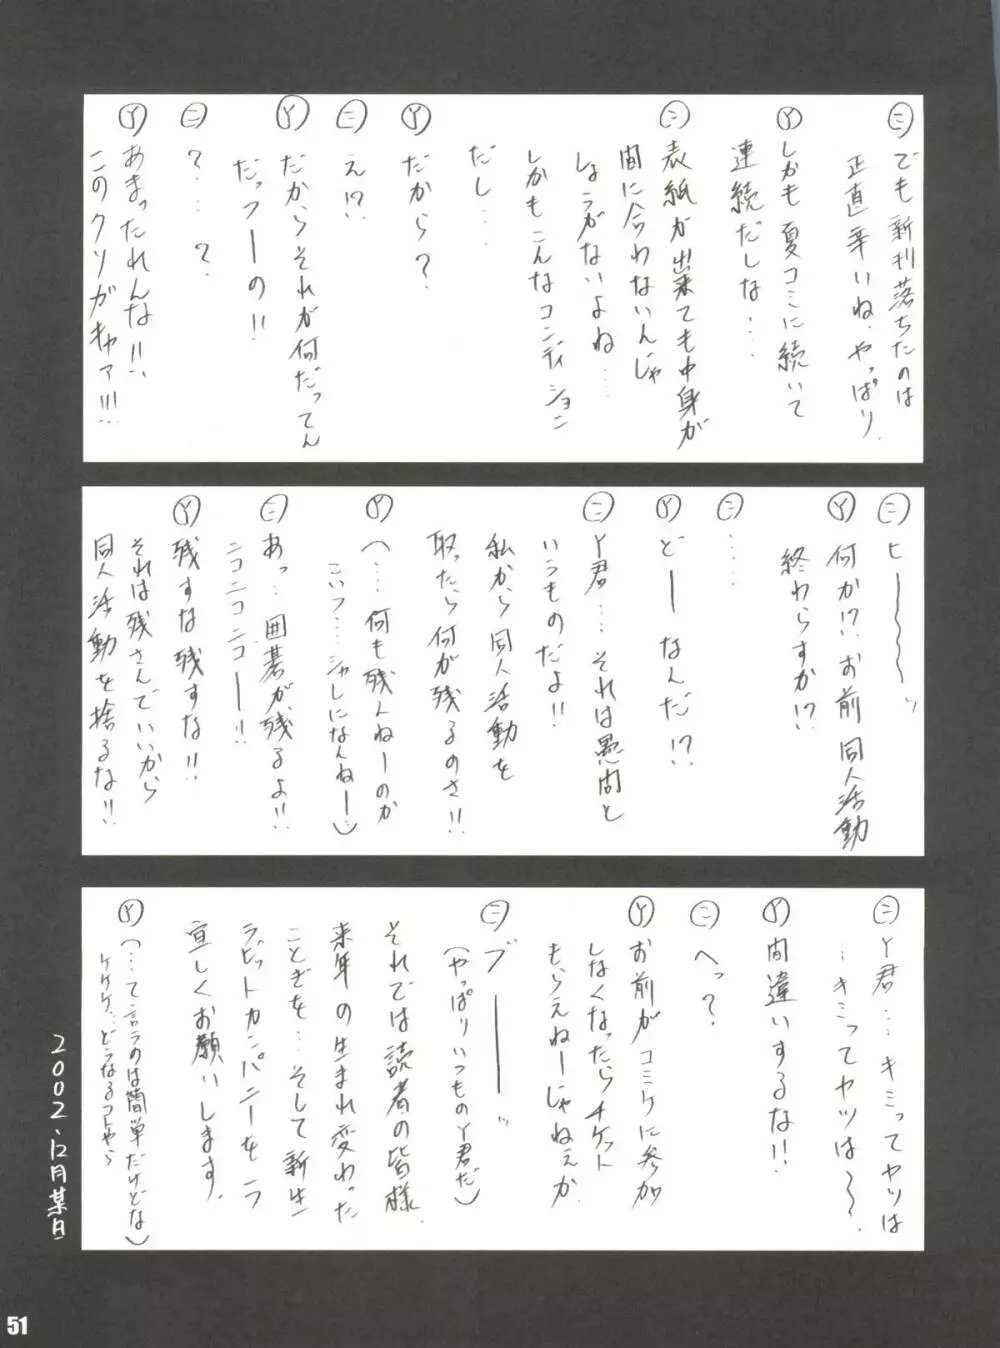 ㊁でも新刊落ちたのは
正直辛いね、やっぱり。
Ⓨしかも夏コミに続いて
連続だしな‥‥
㊁表紙が出来ても中身が
間に合わないんじゃ
しょうがないよね‥‥
しかもこんなコンディション
だし‥‥
Ⓨだから?
㊁え!?
Ⓨだからそれが何だってん
だっつーの!!
㊁?‥‥?
Ⓨあまったれんな!!
このクソガキャァ!!!
㊁ヒ〜〜〜ッ
Ⓨ何か!?お前同人活動
終わらすか!?
㊁‥‥
Ⓨどーなんだ!?
㊁Y君‥‥それは愚問と
いうものだよ!!
私から同人活動を
取ったら何が残るのさ!!
Ⓨ(‥‥何も残んねーのか
こいつ‥‥シャレになんねー)
㊁あっ‥囲碁が残るよ!!
ニコニコニコー!!
Ⓨ残すな残すな!!
それは残さんでいいから
同人活動を捨るな!!
㊁Y君‥‥キミってヤツは
‥キミってヤツは〜〜。
Ⓨ間違いするな!!
㊁へっ?
Ⓨお前がコミケに参加
しなくなったらチケット
もらえねーじゃねぇか
㊁ブーーーッ
(やっぱりいつものY君だ)
それでは読者の皆様、
来年の生まれ変わった
ことぎを‥そして新生
ラビットカンパニーをヨ
宜しくお願いします。
Ⓨ(‥‥て言うのは簡単だけどな)
ケケケ‥どうなるコトやら
2002、12月某日
51